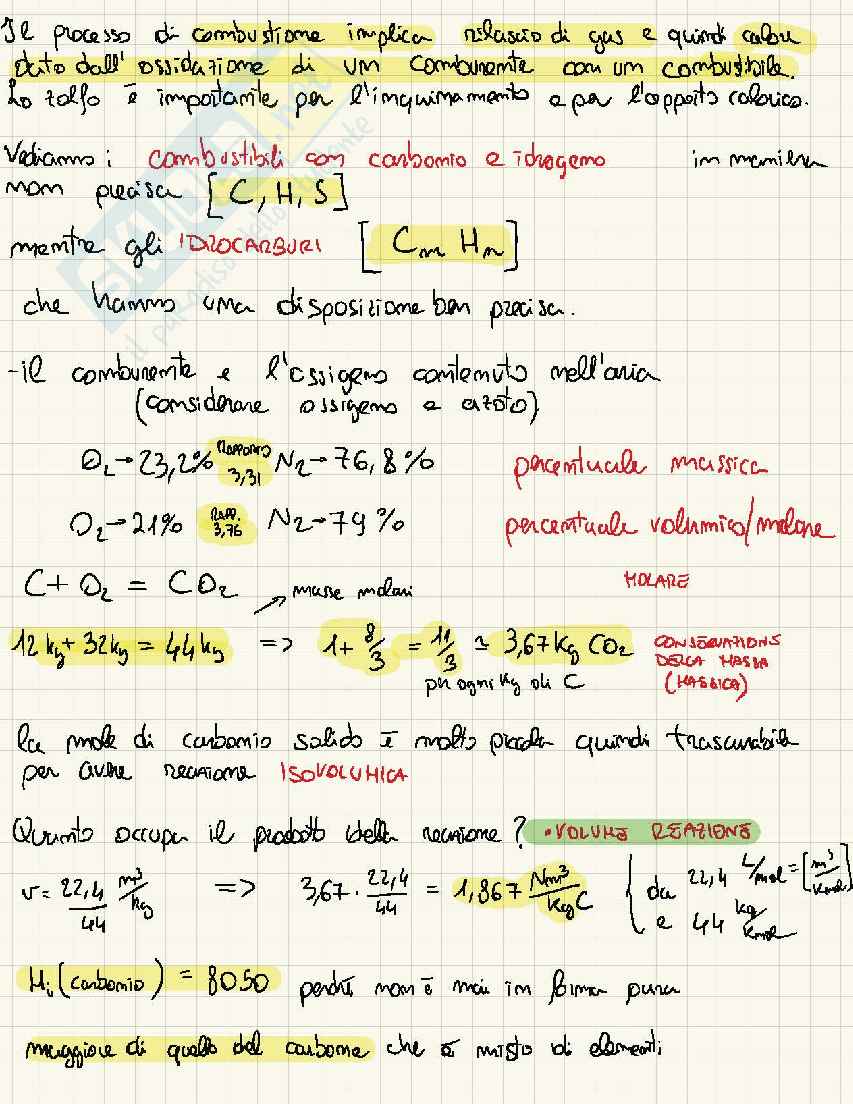 Il processo di combustione implica rilascio di gas e quindi calore
dato dall'ossidazione di un comburente con un combustibile.
Lo zolfo è importante per l'inquinamento e per l'apporto calorico.
Vediamo i combustibili con carbonio e idrogeno in maniera
non precisa [C, H, S]
mentre gli IDROCARBURI [Cm Hn]
che hanno una disposizione ben precisa.
-il comburente e l'ossigeno contenuto nell'aria
(considerare ossigeno e azoto)
O2→23,2% RAPPORTO 3,31 N2→76,8% percentuale massica
O2→21% RAPP. 3,76 N2→79% percentuale volumica/molare
MOLARE
C + O2 = CO2 masse molari
12 kg + 32 kg = 44 kg => 1 + 8/3 = 11/3 ≃ 3,67 Kg CO2 CONSERVAZIONE DELLA MASSA (MASSICA)
per ogni Kg di C
la mole di carbonio solido è molto piccola quindi trascurabile
per avere reazione ISOVOLUMICA
Quanto occupa il prodotto della reazione? • VOLUME REAZIONE
v = 22,4/44 m³/kg => 3,67 · 22,4/44 = 1,867 Nm³/kg C { da 22,4 L/mol = [m³/kmol]
e 44 kg/kmol
Hi (carbonio) = 8050 perché non è mai in forma pura
maggiore di quello del carbone che è misto di elementi
SKUOLA.net
il paradiso dello studente